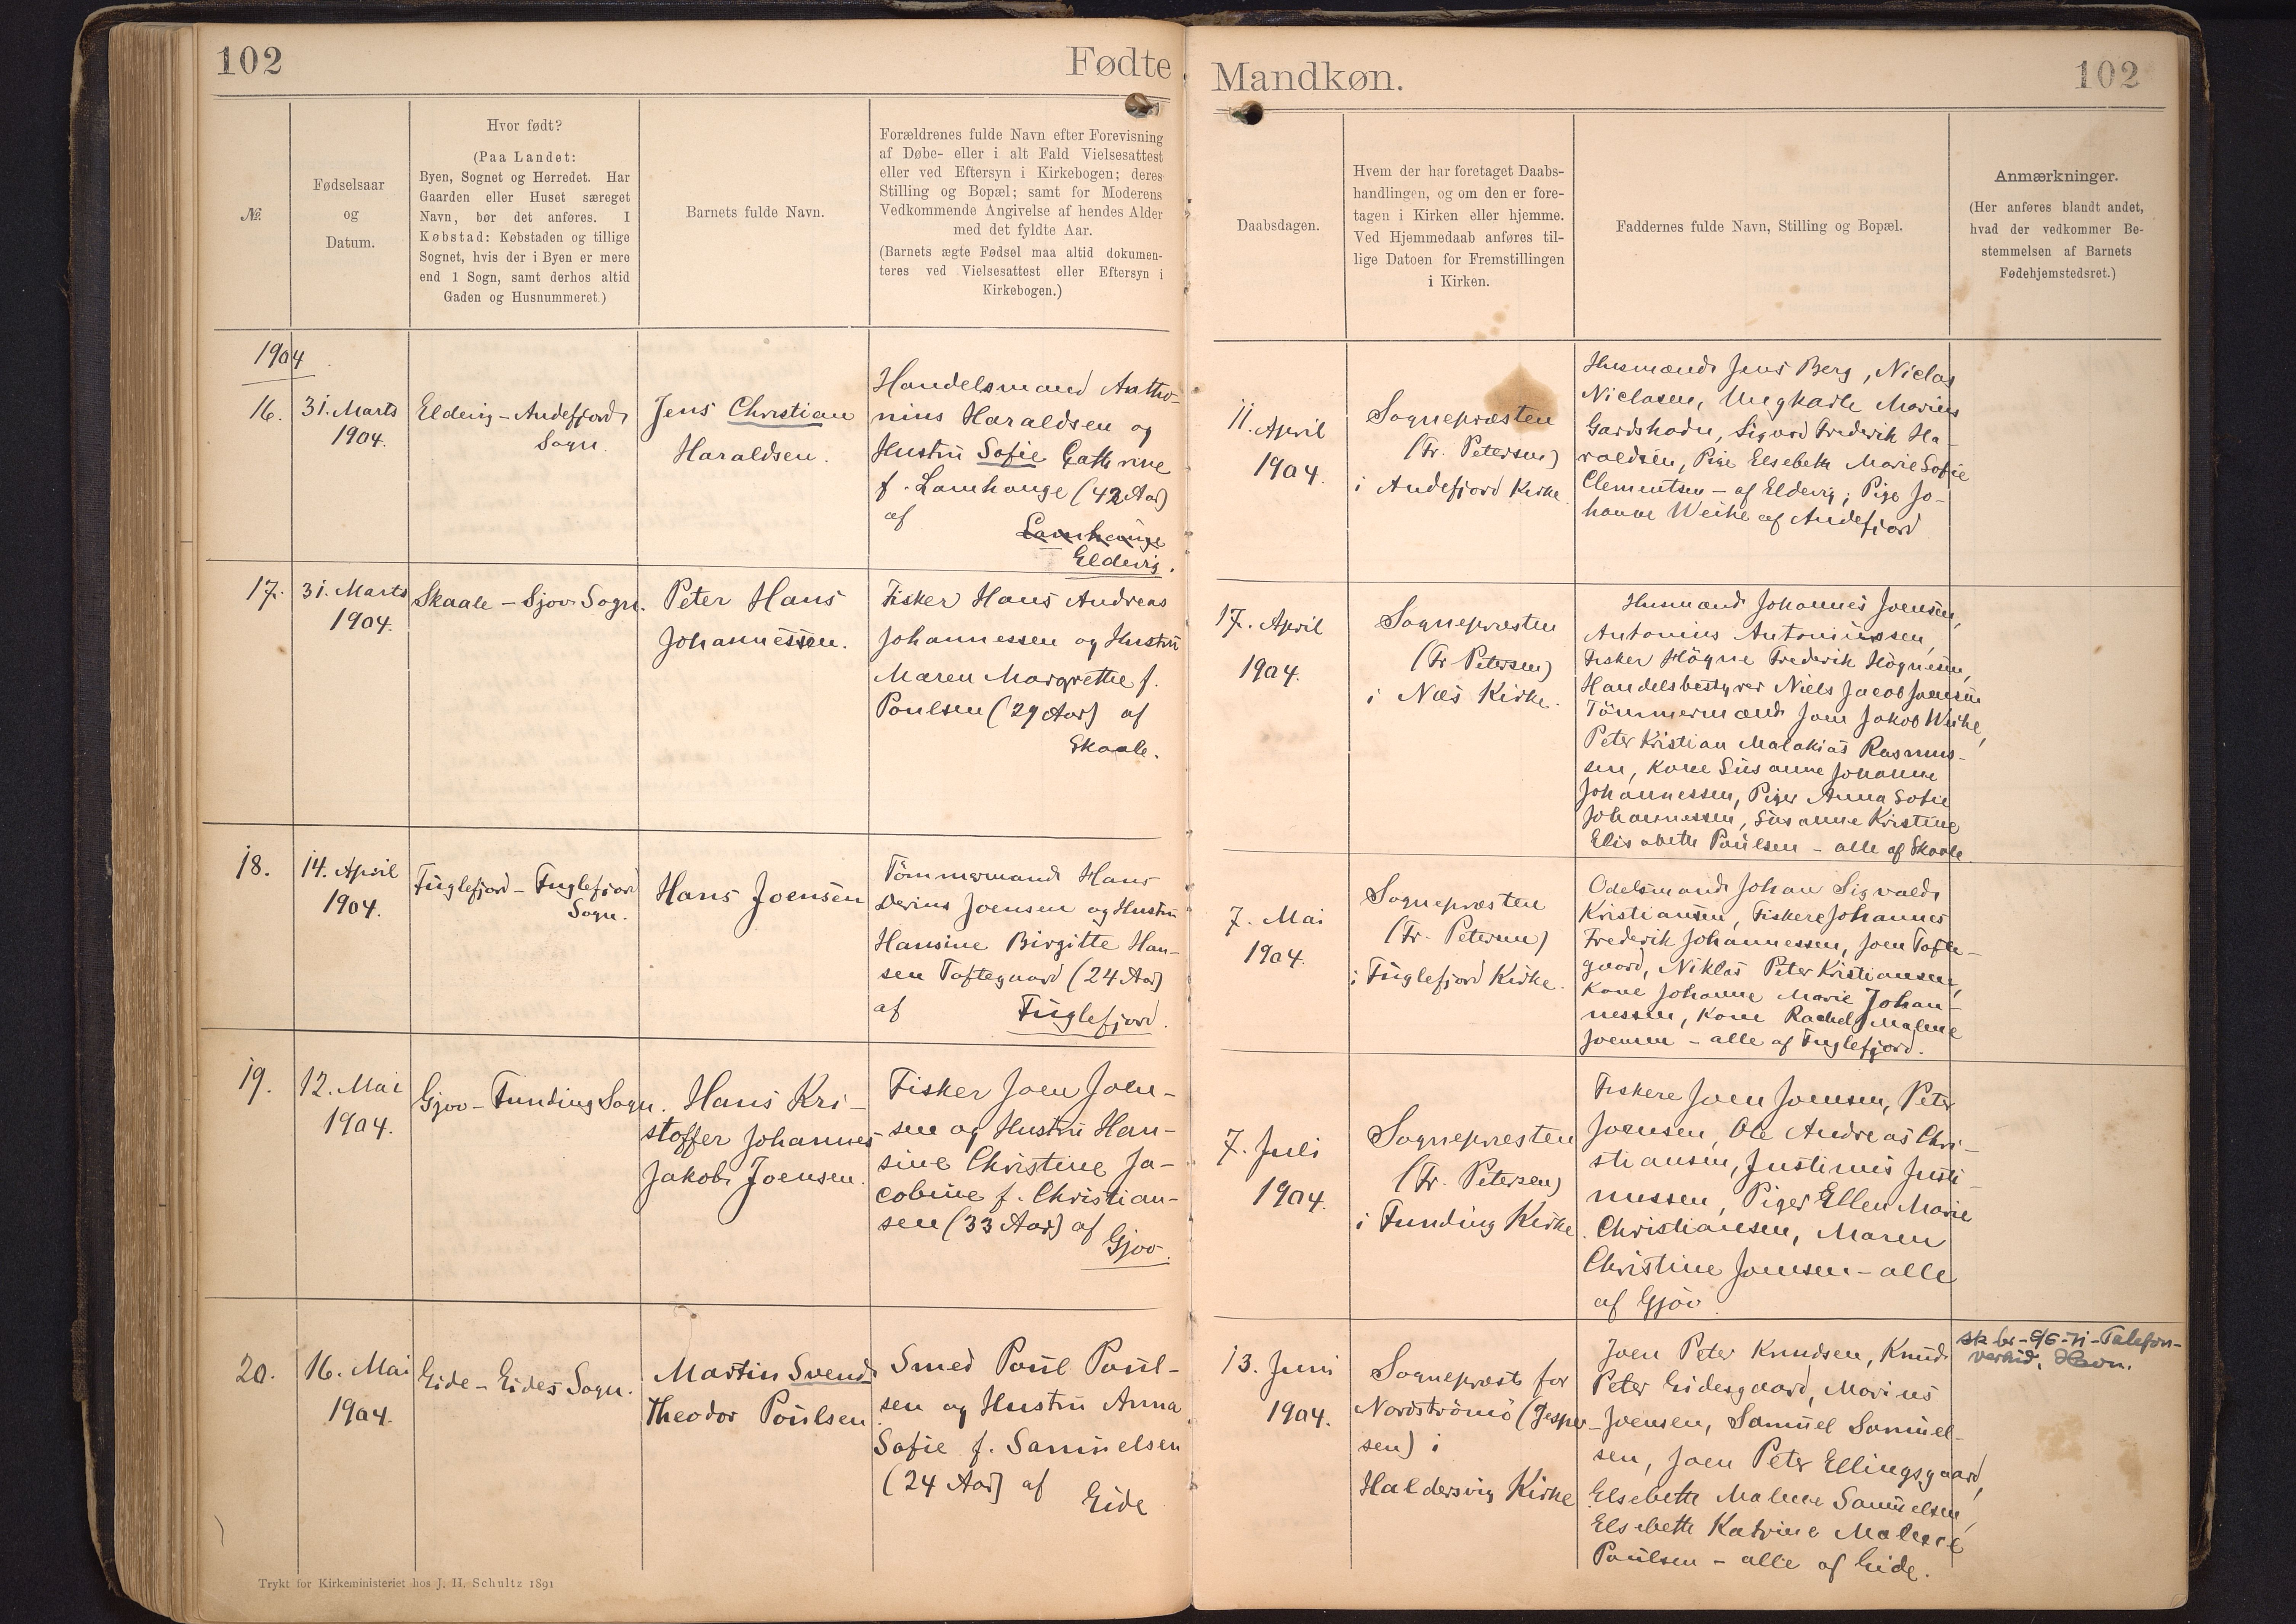 102
Fødte
Mandkøn.
102
№.
Fødselsaar
og
Datum.
Hvor født?
(Paa Landet:
Byen, Sognet og Herredet. Har
Gaarden eller Huset særeget
Navn, bør det anføres. I
Købstad: Købstaden og tillige
Sognet, hvis der i Byen er mere
end 1 Sogn, samt derhos altid
Gaden og Husnummeret.)
Barnets fulde Navn.
Forældrenes fulde Navn efter Forevisning
af Døbe- eller i alt Fald Vielsesattest
eller ved Eftersyn i Kirkebogen; deres
Stilling og Bopæl; samt for Moderens
Vedkommende Angivelse af hendes Alder
med det fyldte Aar.
(Barnets ægte Fødsel maa altid dokumen-
teres ved Vielsesattest eller Eftersyn i
Kirkebogen.)
Daabsdagen.
Hvem der har foretaget Daabs-
handlingen, og om den er fore-
tagen i Kirken eller hjemme.
Ved Hjemmedaab anføres til-
lige Datoen for Fremstillingen
i Kirken.
Faddernes fulde Navn, Stilling og Bopæl.
Anmærkninger.
(Her anføres blandt andet,
hvad der vedkommer Be-
stemmelsen af Barnets
Fødehjemstedsret.)
1904
16.
31. Marts
1904.
Eldevig - Andefjord
Sogn.
Jens Christian
Haraldsen.
Handelsmand Antho-
nius Haraldsen og
Hustrü Sofie Cathrine
f. Lamhauge (42 Aar)
af
Lamhauge
Eldevig.
11. April
1904.
Sognepræsten
(Fr. Petersen)
i Andefjord Kirke.
Husmænd Jens Berg, Niclas
Niclasen, Ungkarle Marius
Gardshodn, Sigvard Frederik Ha-
raldsen, Pige Elsebeth Marie Sofie
Clementsen - af Eldevig; Pige Jo-
hanne Weihe af Andefjord
17.
31. Marts
1904.
Skaale - Sjov Sogn.
Peter Hans
Johannessen.
Fisker Hans Andreas
Johannessen og Hustrü
Maren Margrethe f.
Poulsen (29 Aar) af
Skaale.
17. April
1904.
Sognepræsten
(Fr Petersen)
i Næs Kirke.
Husmænd Johannes Joensen,
Antonius Antoniussen,
Fisker Högne Frederik Högnesen,
Handelsbestyrer Niels Jacob Joensen
Tömmermænd Joen Jakob Weihe,
Peter Kristian Malakias Rasmus-
sen, Kone Süsanne Johanne
Johannessen, Piger Anna Sofie
Johannessen, Süsanne Kristine
Elisabeth Poülsen - alle af Skaale.
18.
14. April
1904.
Füglefjord - Fuglefjord
Sogn.
Hans Joensen
Tömmermand Hans
Derius Joensen og Hustrü
Hansine Birgitte Han-
sen Toftegaard (24 Aar)
af
Füglefjord.
7. Mai
1904.
Sognepræsten
(Fr. Petersen)
i Füglefjord Kirke.
Odelsmand Johan Sigvald
Kristiansen, Fiskere Johannes
Frederik Johannessen, Joen Tofte-
gaard, Niklas Peter Kristiansen,
Kone Johanne Marie Johan-
nessen, Kone Rachel Malene
Joensen - alle af Fuglefjord.
19.
12. Mai
1904.
Gjov - Funding Sogn.
Hans Kri-
stoffer Johannes
Jakob Joensen.
Fisker Joen Joen-
sen og Hustrü Han-
sine Christine Ja-
cobine f. Christian-
sen (33 Aar) af
Gjov.
7. Juli
1904.
Sognepræsten
(Fr. Petersen)
i Funding Kirke.
Fiskere Joen Joensen, Peter
Joensen, Ole Andreas Chri-
stiansen, Justinus Justi-
nussen, Piger Ellen Marie
Christiansen, Maren
Christine Joensen - alle
af Gjov
20.
16. Mai
1904.
Eide - Eides Sogn.
Martin Svend
Theodor Poülsen
Smed Poül Poül-
sen og Hustrü Anna
Sofie f. Samüelsen
(24 Aar) af
Eide
13. Juni
1904.
Sognepræst for
Nordströmö (Jesper-
sen) i
Haldersvig Kirke
Joen Peter Knudsen, Knud
Peter Eidesgaard, Marius
Joensen, Samüel Samüel-
sen, Joen Peter Ellingsgaard,
Elsebeth Malene Samüelsen,
Elsebeth Katrine Malene
Poülsen - alle af Eide.
Havn.
Trykt for Kirkeministeriet hos J. H. Schultz 1891